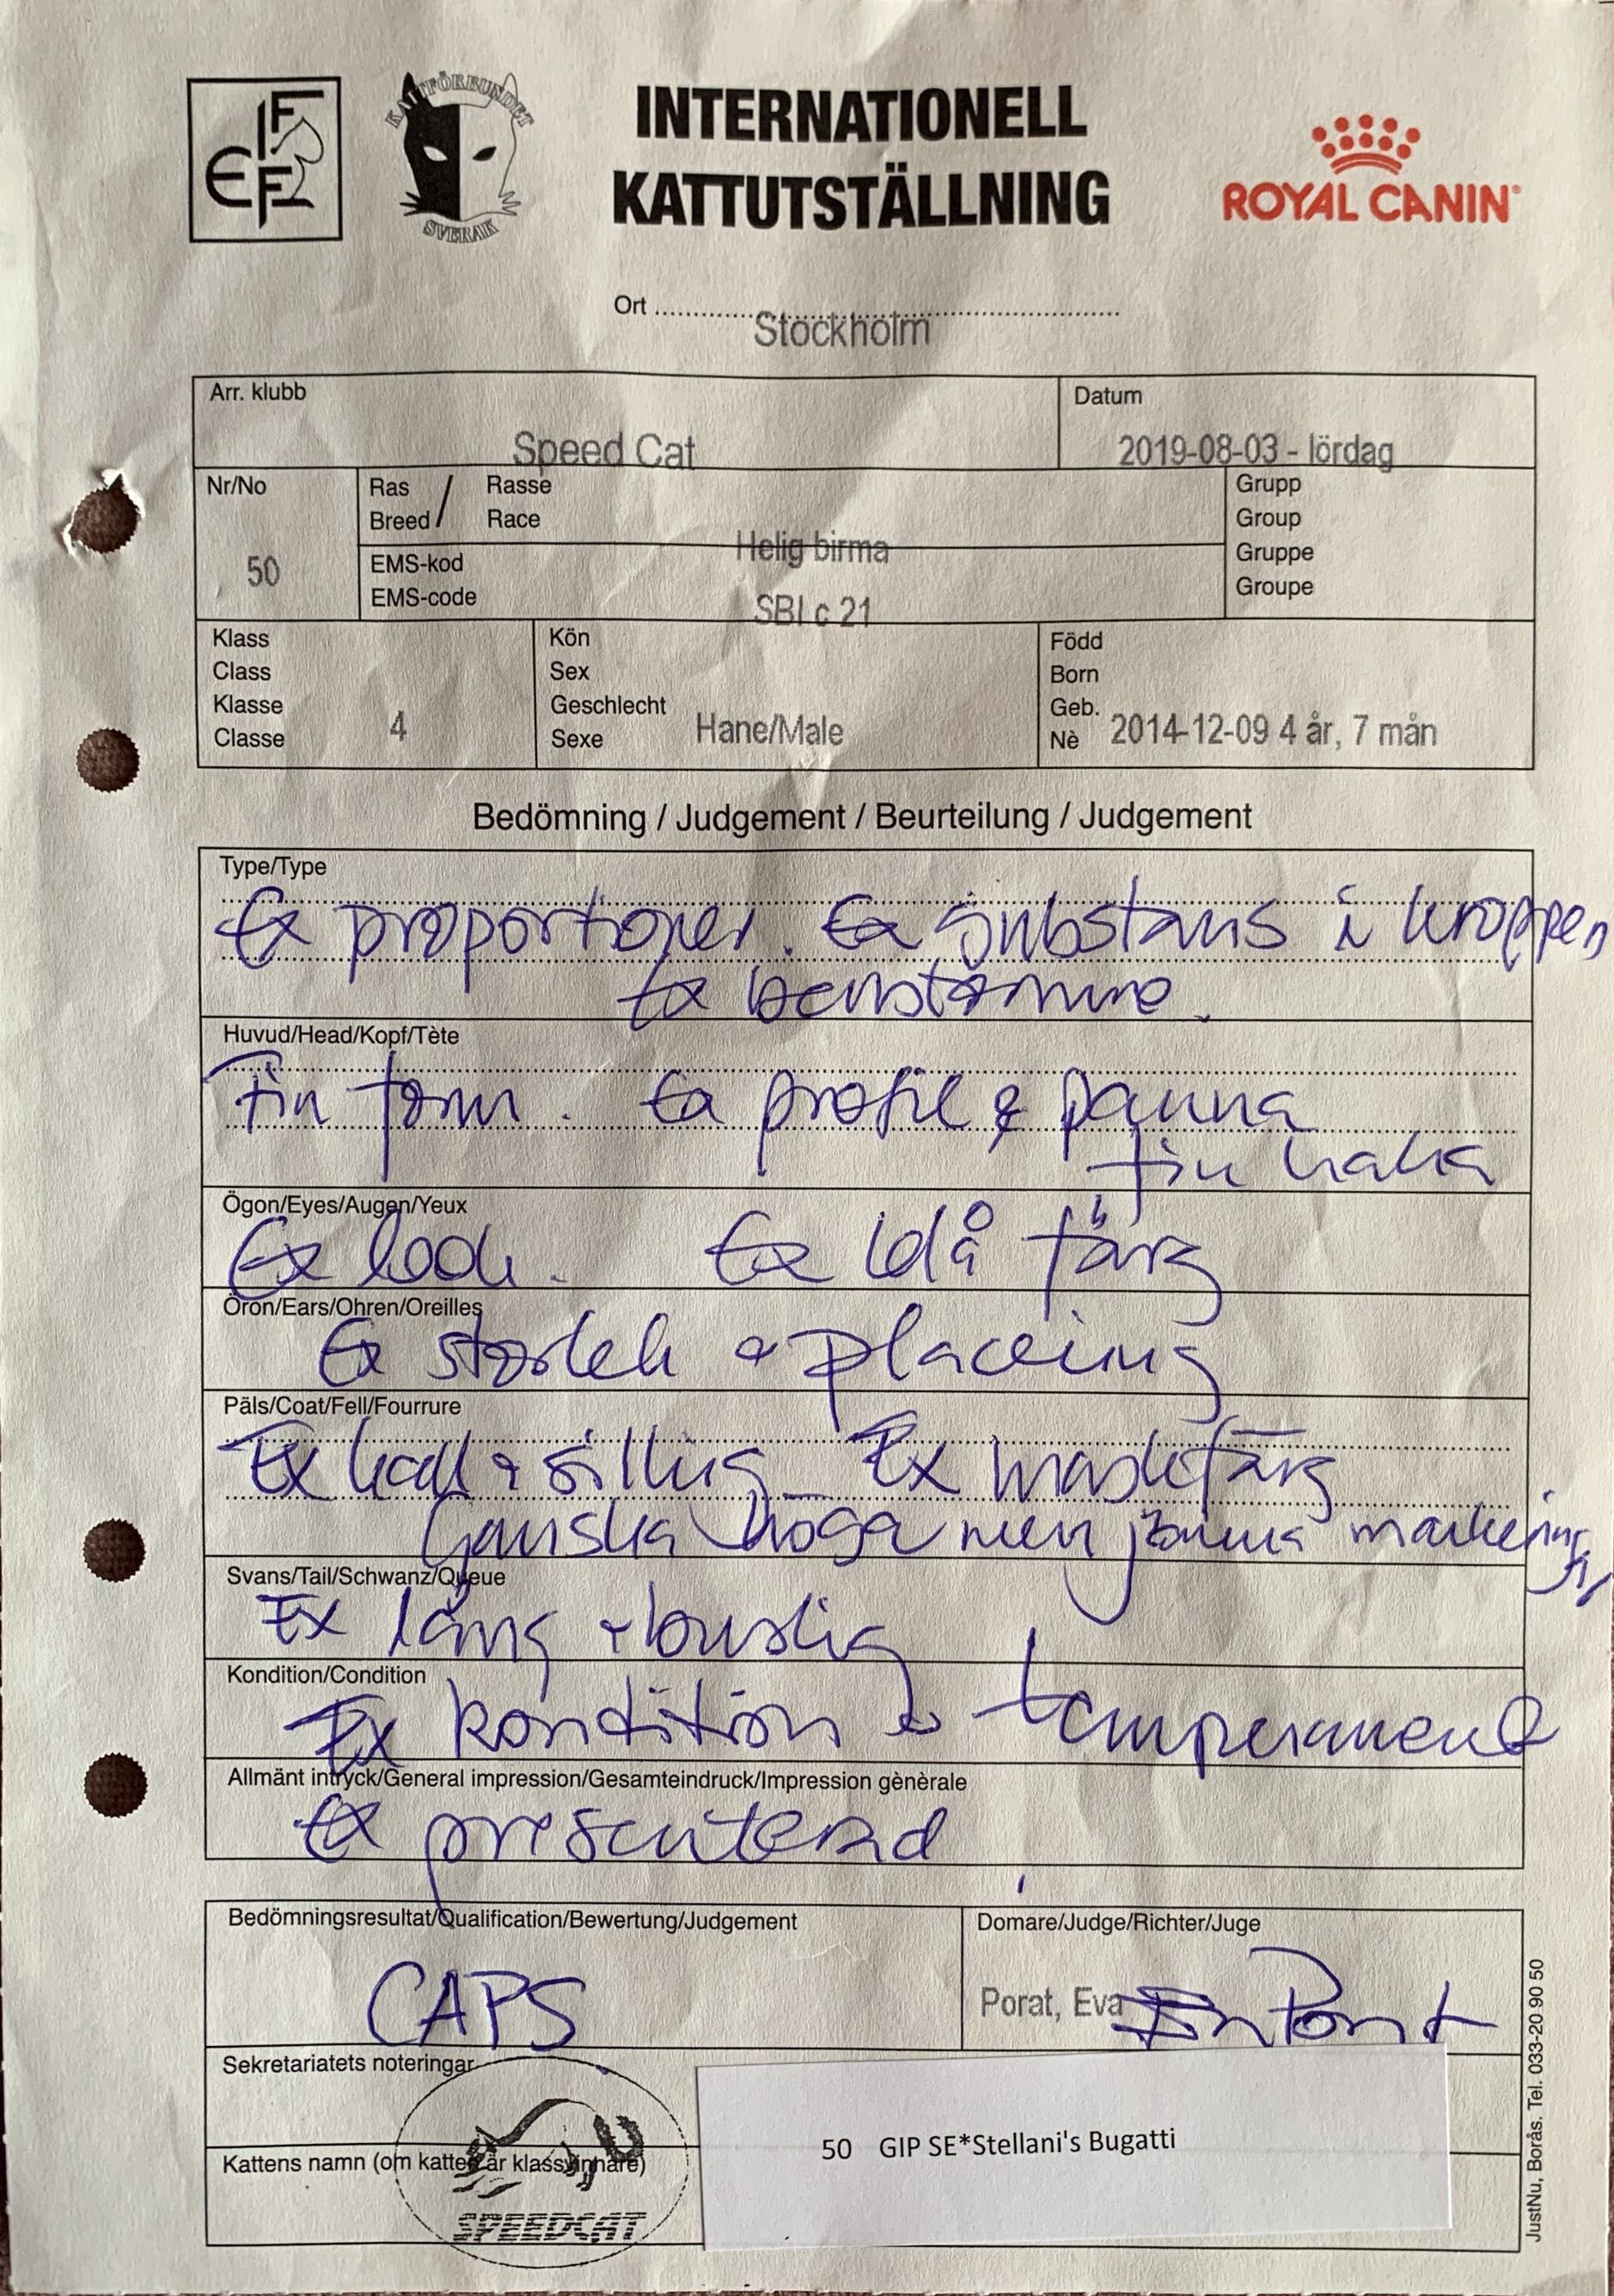 FIFe
KATTFÖRBUNDET
SVERAK
INTERNATIONELL
KATTUTSTÄLLNING
ROYAL CANIN
Ort Stockholm
Arr. klubb
Speed Cat
Datum
2019-08-03 - lördag
Nr/No
50
Ras / Rasse
Breed / Race
Helig birma
EMS-kod
EMS-code
SBI c 21
Grupp
Group
Gruppe
Groupe
Klass
Class
Klasse
Classe 4
Kön
Sex
Geschlecht
Sexe Hane/Male
Född
Born
Geb.
Nè 2014-12-09 4 år, 7 mån
Bedömning / Judgement / Beurteilung / Judgement
Type/Type
Ex proportioner. Ex substans i kroppen
Ex benstomme.
Huvud/Head/Kopf/Tète
Fin form. Ex profil & panna
fin haka
Ögon/Eyes/Augen/Yeux
Ex . Ex blå färg
Öron/Ears/Ohren/Oreilles
Ex storlek & placering
Päls/Coat/Fell/Fourrure
Ex & silkig Ex maskfärg
Ganska höga men jämna markeringar
Svans/Tail/Schwanz/Queue
Ex lång & buskig
Kondition/Condition
Ex kondition & temperament
Allmänt intryck/General impression/Gesamteindruck/Impression gènèrale
Ex presenterad
Bedömningsresultat/Qualification/Bewertung/Judgement
CAPS
Domare/Judge/Richter/Juge
Porat, Eva Eva Porat
Sekretariatets noteringar
Kattens namn (om katten är klassvinnare)
SPEEDCAT
50 GIP SE*Stellani's Bugatti
JustNu, Borås. Tel. 033-20 90 50